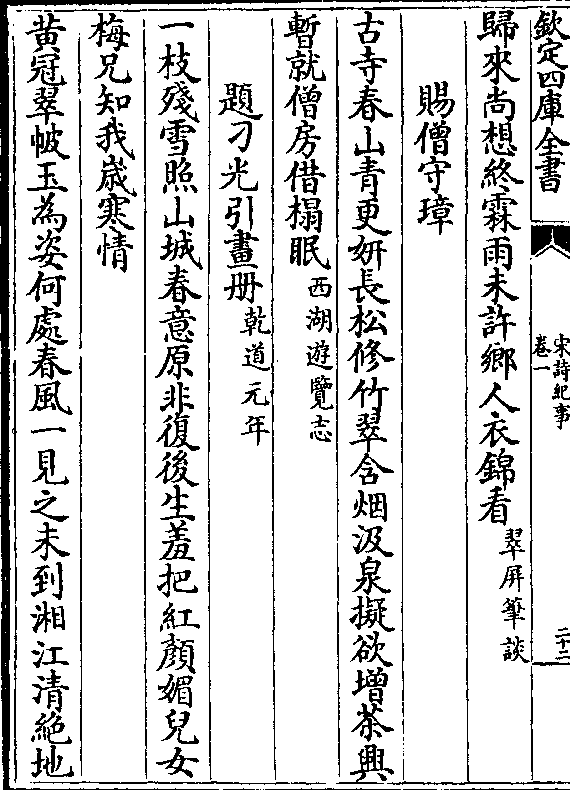 欽定四庫全書
宋詩紀事
卷一
二十二
歸來尚想終霖雨未許鄉人衣錦看翠屏筆談
賜僧守璋
古寺春山青更妍長松修竹翠含烟汲泉擬欲增茶興
暫就僧房借榻眠西湖遊覽志
題刁光引畫册乾道元年
一枝殘雪照山城春意原非復後生羞把紅顏媚兒女
梅兄知我歲寒情
黄冠翠帔玉為姿何處春風一見之未到湘江清絶地